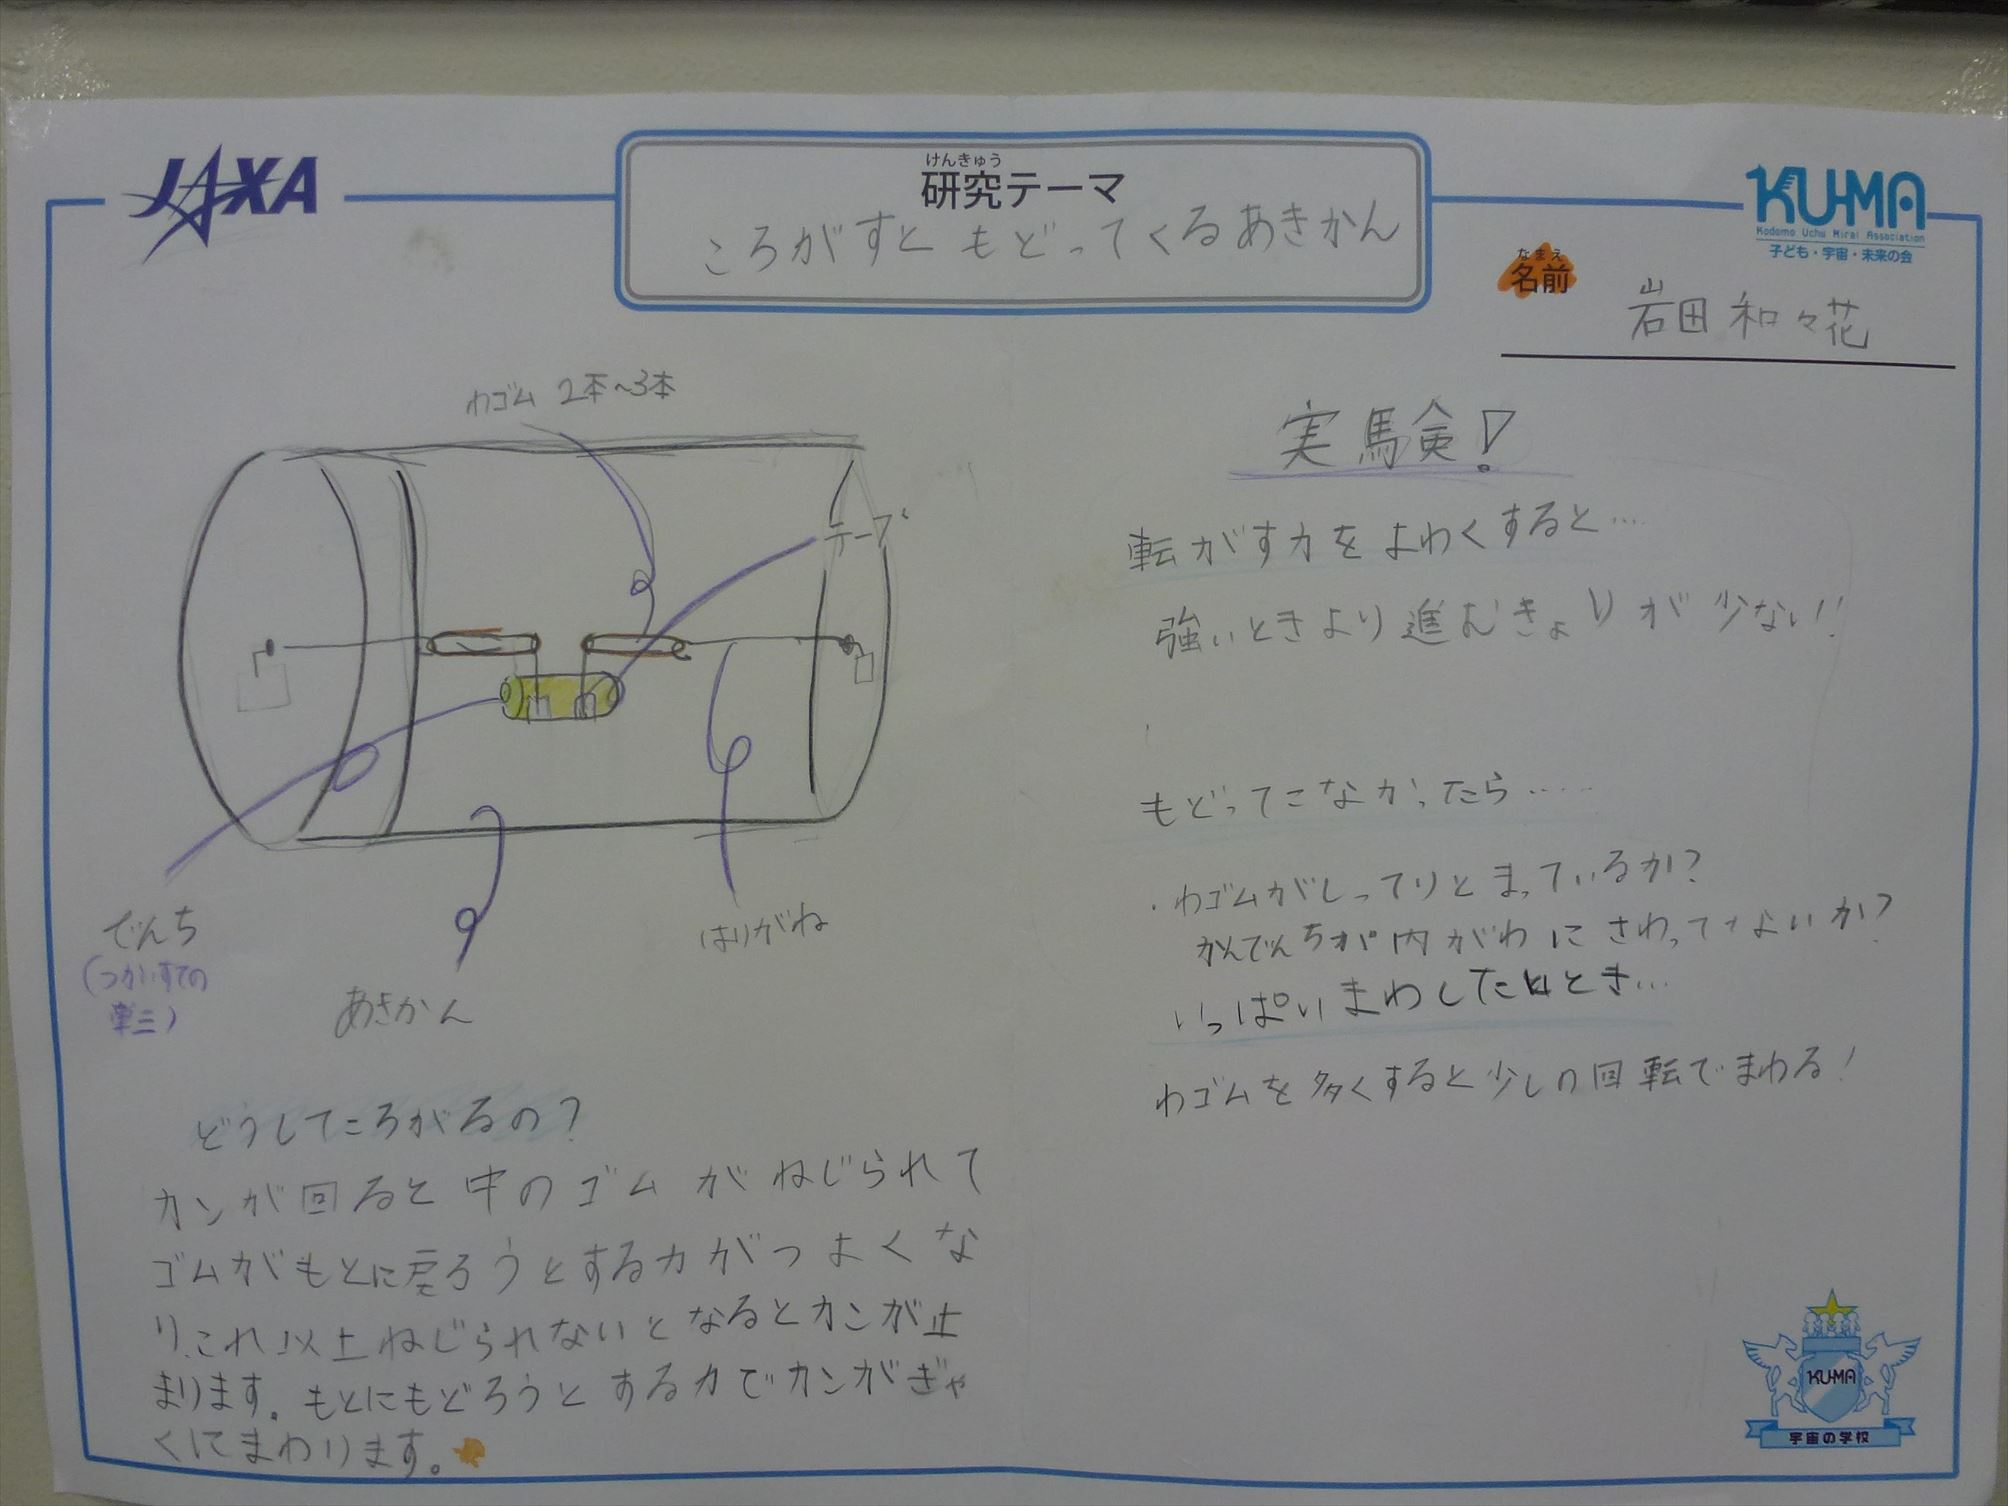 JAXA
けんきゅう
研究テーマ
ころがすと もどってくるあきかん
KU-MA
Kodomo Uchu Mirai Association
子ども・宇宙・未来の会
なまえ
名前
岩田 和々花
わゴム 2本~3本
テープ
でんち
(つかいすての
単三)
あきかん
はりがね
どうしてころがるの?
カンが回ると中のゴムがねじられて
ゴムがもとに戻ろうとする力がつよくな
り、これ以上ねじられないとなるとカンが止
まります。もとにもどろうとする力でカンがぎゃ
くにまわります。
実験!
転がす力をよわくすると…
強いときより進むきょりが少ない!!
もどってこなかったら……
・わゴムがしってりとまっているか?
かんでんちが内がわにさわってないか?
いっぱいまわしたとき…
わゴムを多くすると少しの回転でまわる!
KU-MA
宇宙の学校